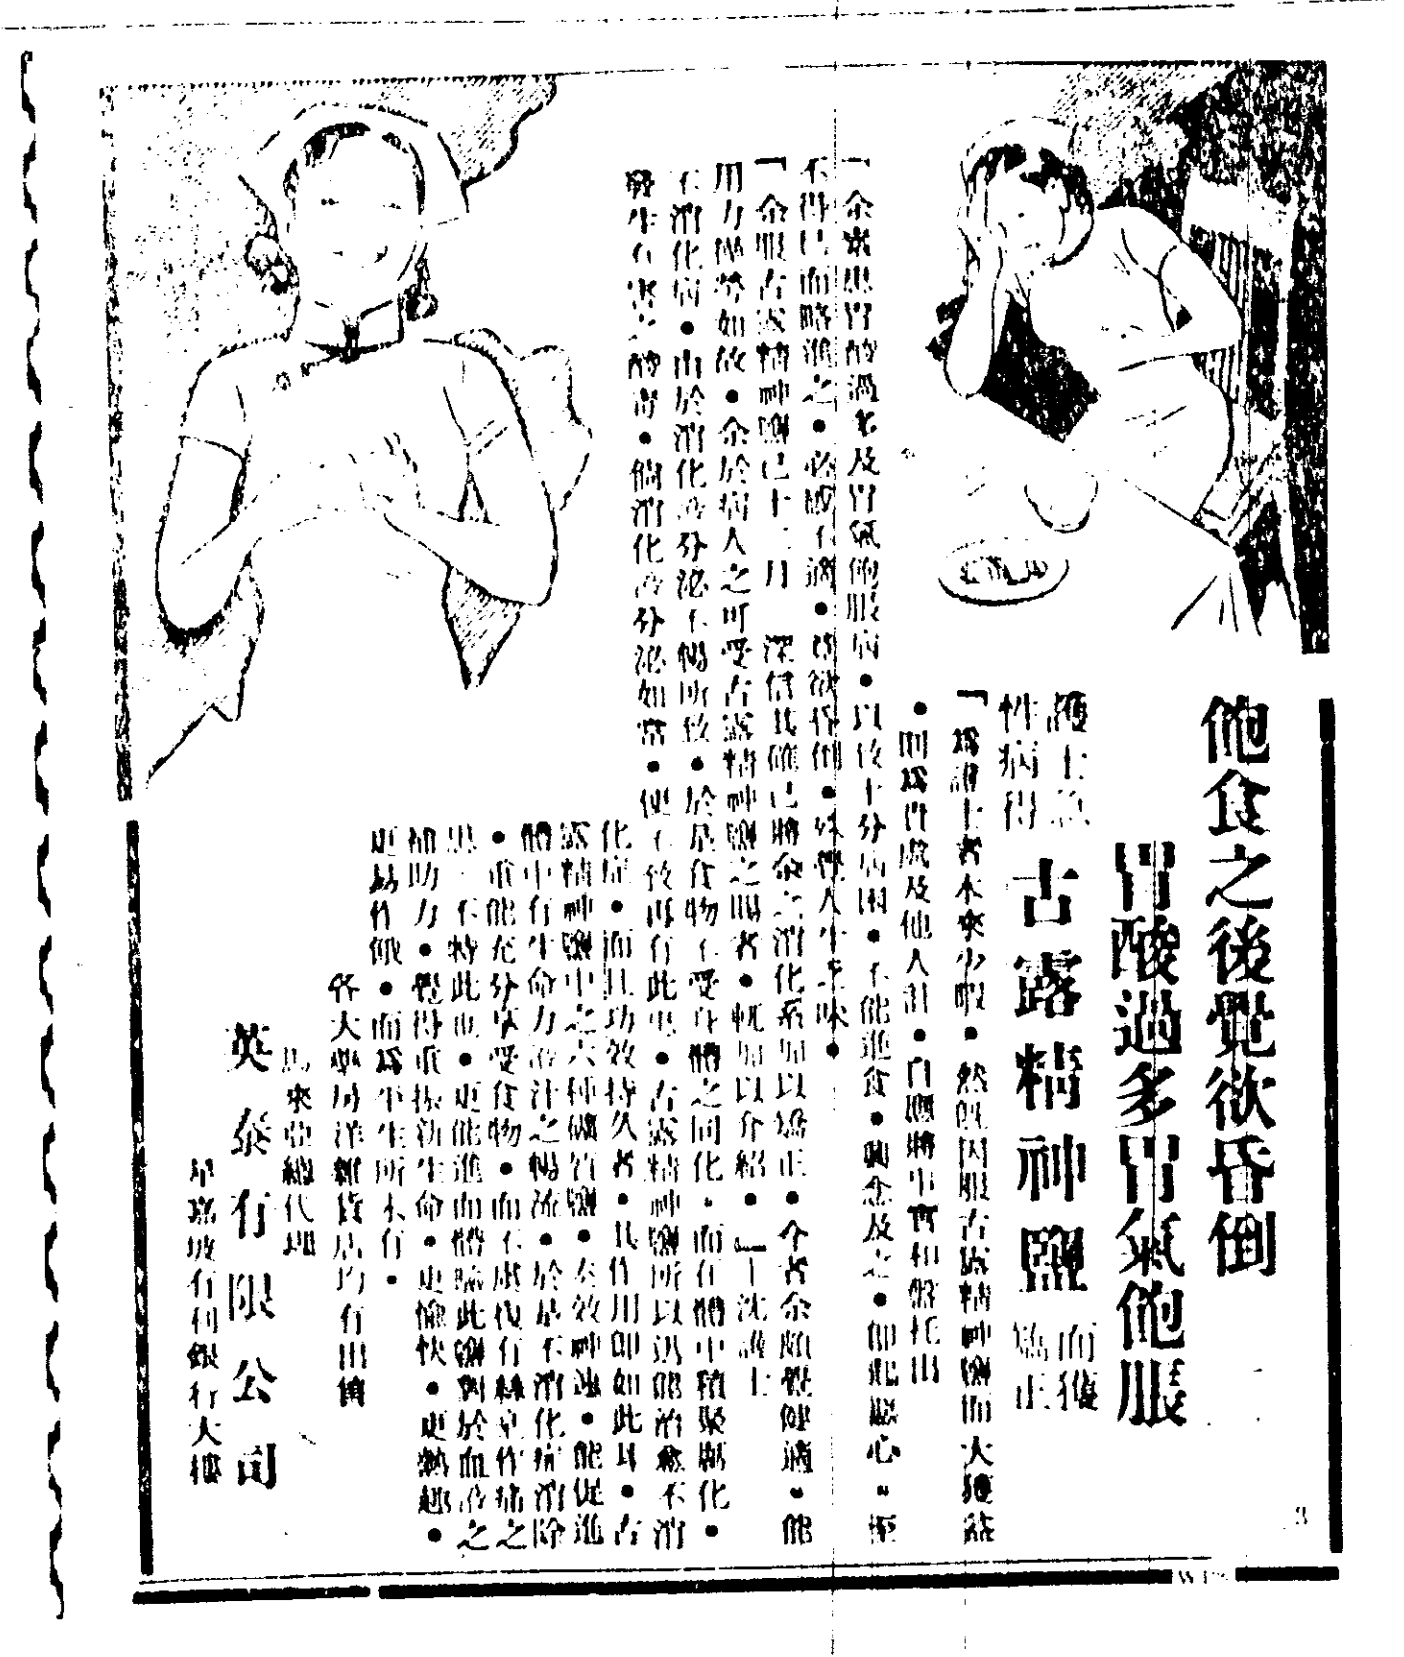 飽食之後覺欲昏倒
胃酸過多胃氣飽脹
護士急
性病得
古露精神鹽
而獲
矯正
「為護士者本來少暇・然既因服古露精神鹽而大獲益
・則為胃嚴及他人計・自應將事實和盤托出
「余素患胃酸過多及胃氣飽脹病・以後十分病困・不能進食・偶念及之・即起惡心・
不得已而略進之・必感不適・時欲昏倒・殊覺人生乏味・
「余服古露精神鹽已十二月 深信其確已將余之消化系加以矯正・今者余頗覺健適・能
用力操勞如故・余於病人之可受古露精神鹽之賜者・輒加以介紹・」—沈護士
不消化病・由於消化液分泌不暢所致・於是食物不受身體之同化・而在體中積聚腐化・
發生有害之酸毒・倘消化液分泌如常・便不致再有此患・古露精神鹽所以迅能治愈不消
化症・而且功效特久者・其作用即如此耳・古
露精神鹽中之六種礦質鹽・奏效神速・能促進
體中有生命力液汁之暢流・於是不消化症消除
・重能充分享受食物・而不虞復有絲毫作痛之
患・不特此也・更能進而體驗此鹽對於血液之
補助力・覺得重振新生命・更愉快・更熱趣・
更易作餓・而為平生所未有・
各大藥房洋雜貨店均有出售
馬來亞總代理
英泰有限公司
星嘉坡有利銀行大樓
3